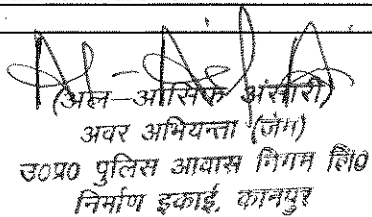 (अल-आसिफ अंसारी)
अवर अभियन्ता (जेम)
उ0प्र0 पुलिस आवास निगम लि0
निर्माण इकाई, कानपुर